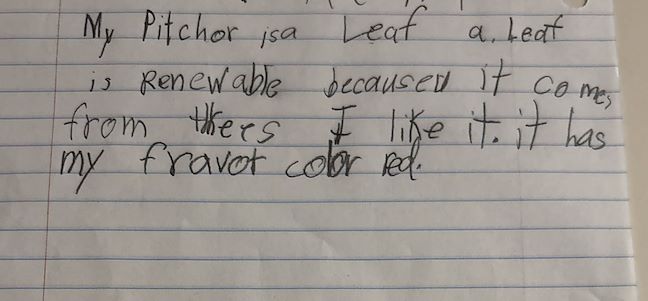 My Pitchor isa Leaf a. Leaf
is Renewable becausew it comes,
from thers I like it. it has
my fravot color red.